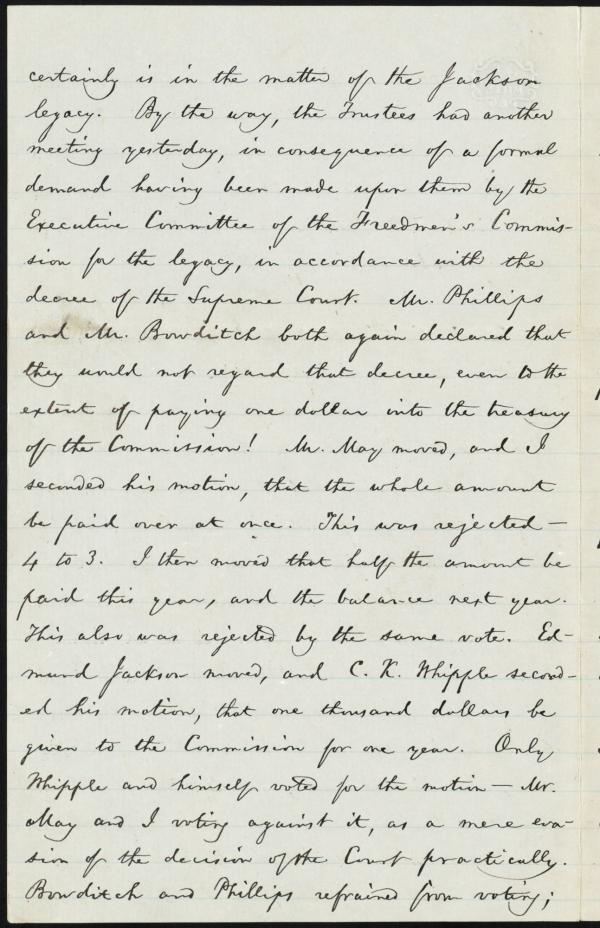 certainly is in the matter of the Jackson
legacy. By the way, the Trustees had another
meeting yesterday, in consequence of a formal
demand having been made upon them by the
Executive Committee of the Freedmen's Commis-
sion for the legacy, in accordance with the
decree of the Supreme Court. Mr. Phillips
and Mr. Bowditch both again declared that
they would not regard that decree, even to the
extent of paying one dollar into the treasury
of the Commission! Mr. May moved, and I
seconded his motion, that the whole amount
be paid over at once. This was rejected —
4 to 3. I then moved that half the amount be
paid this year, and the balance next year.
This also was rejected by the same vote. Ed-
mund Jackson moved, and C. K. Whipple second-
ed his motion, that one thousand dollars be
given to the Commission for one year. Only
Whipple and himself voted for the motion — Mr.
May and I voting against it, as a mere eva-
sion of the decision of the Court practically.
Bowditch and Phillips refrained from voting;